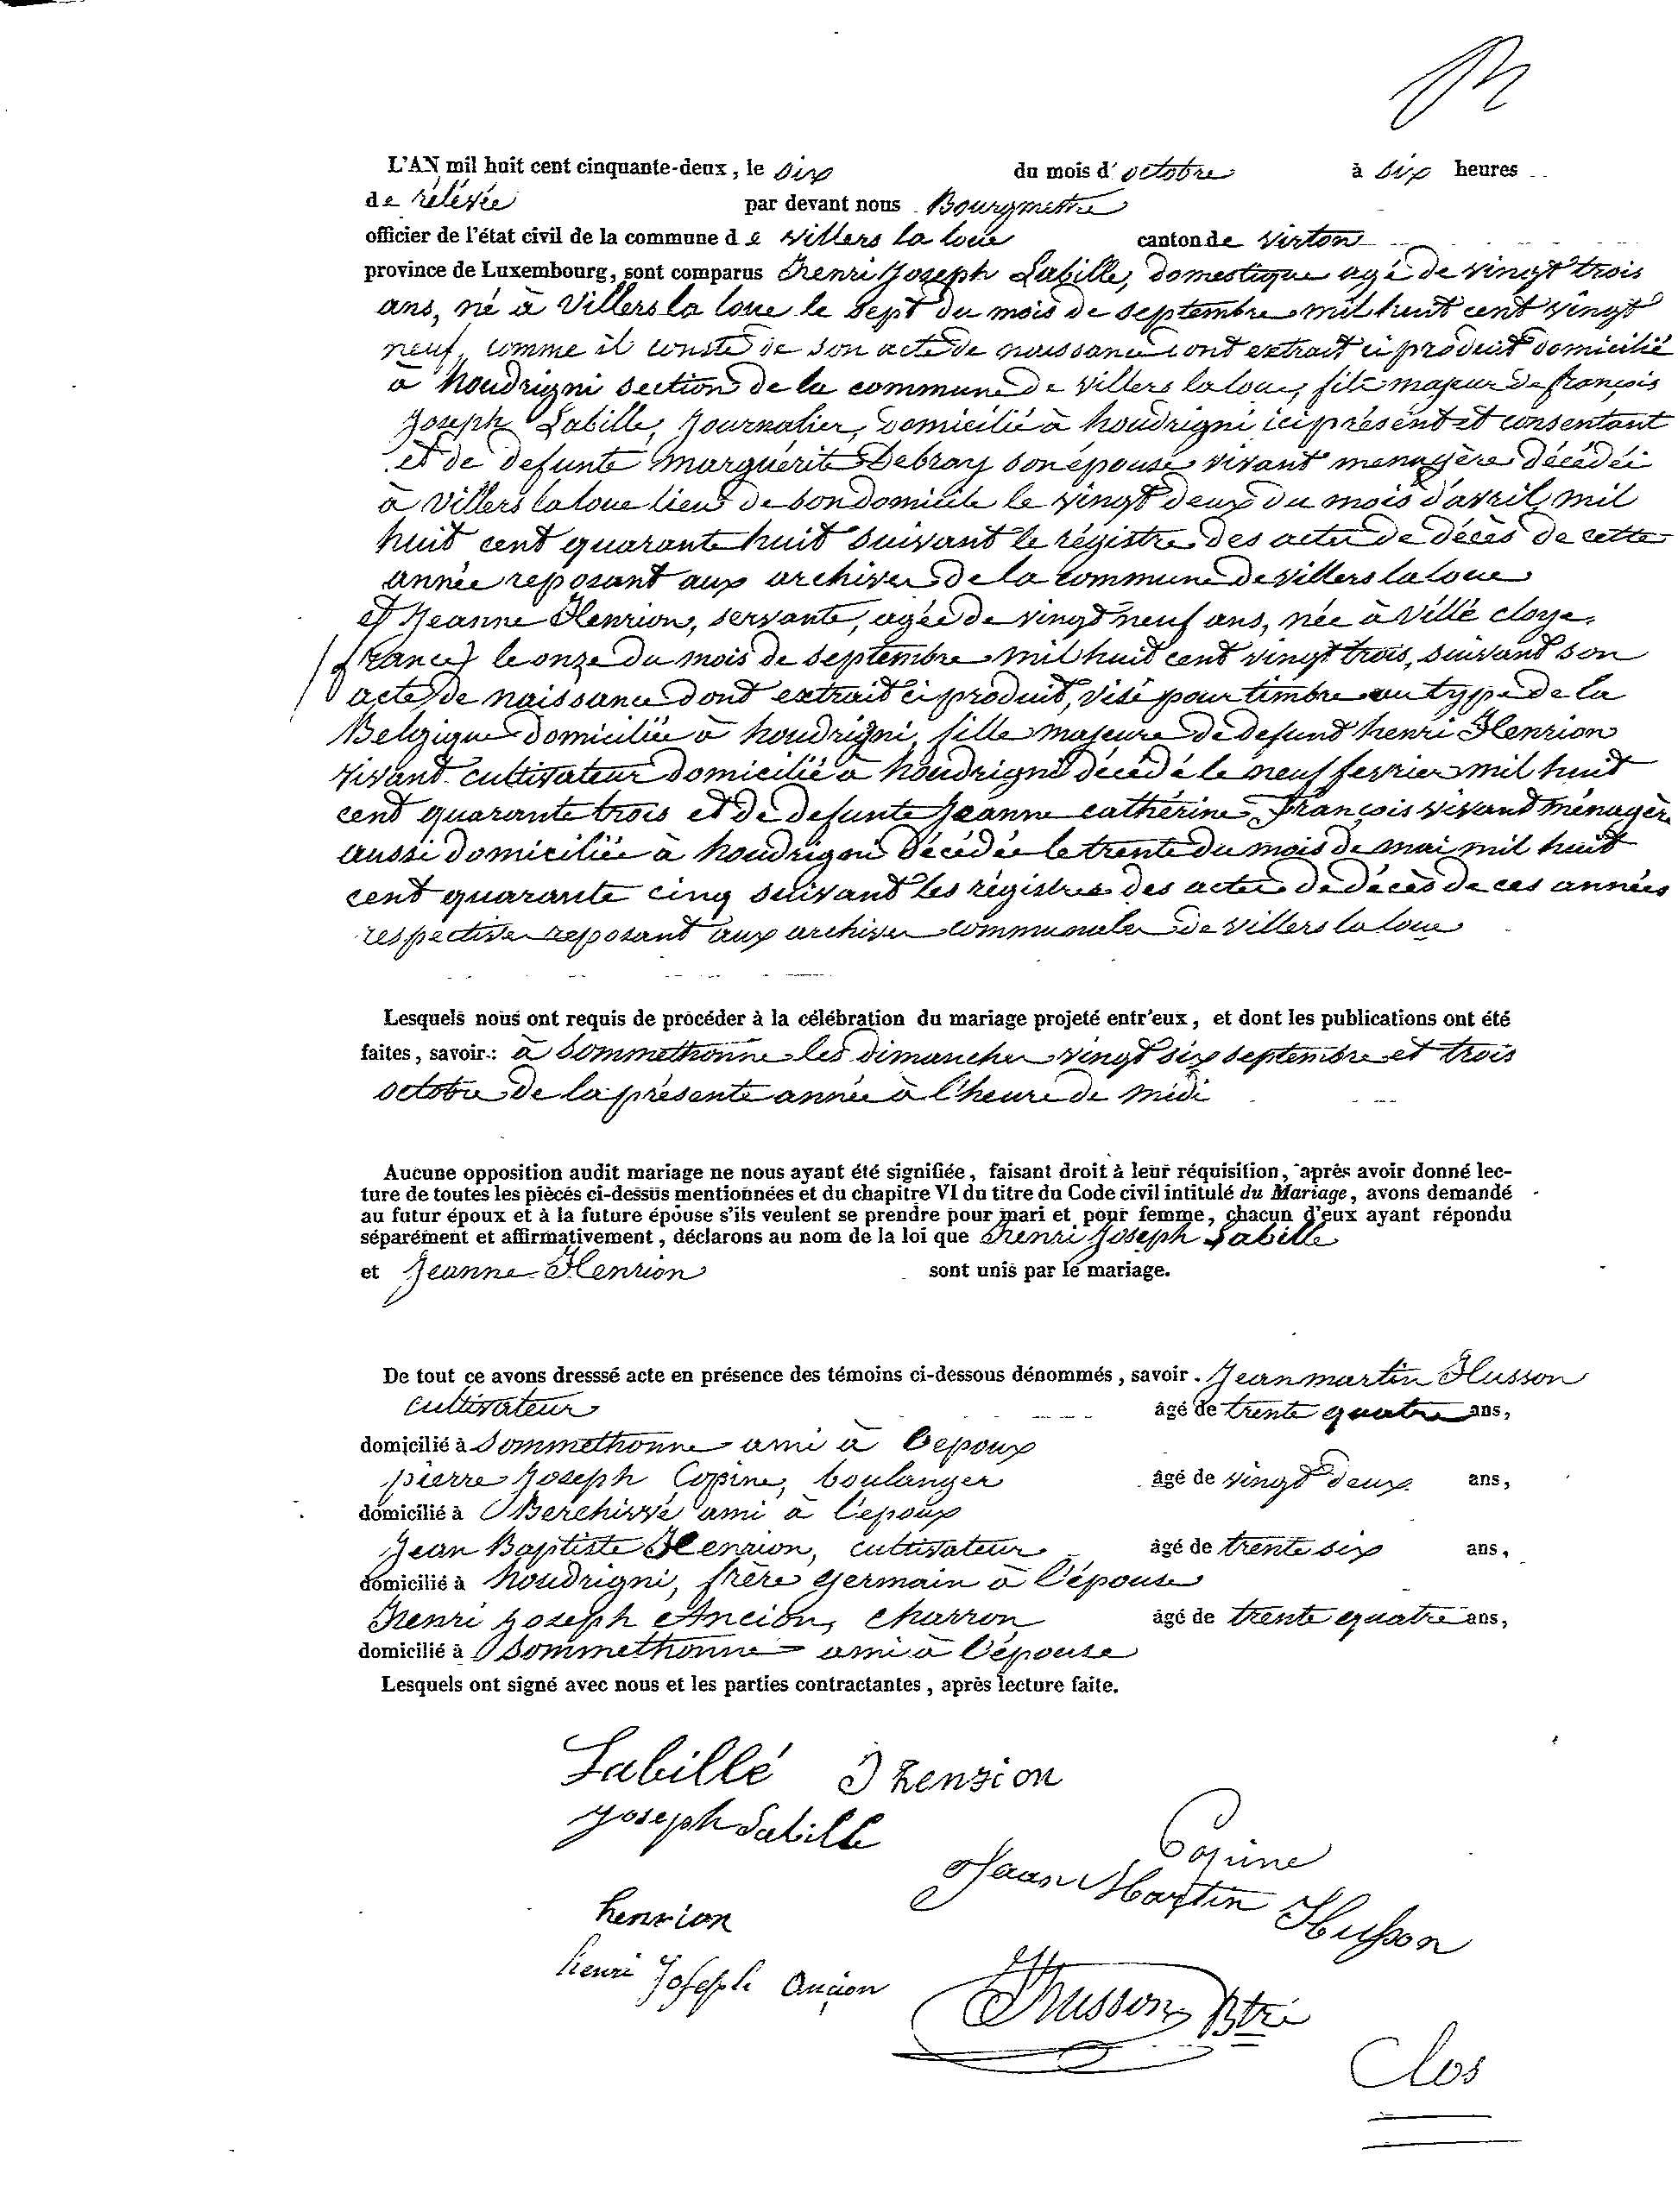 L'AN mil huit cent cinquante-deux, le six du mois d' octobre à six heures
de rélévée par devant nous Bourgmestre
officier de l'état civil de la commune de villers la loue canton de virton
province de Luxembourg, sont comparus henri Joseph Labille, domestique agé de vingt trois
ans, né à Villers la loue le sept du mois de septembre mil huit cent vingt
neuf, comme il conste de son acte de naissance dont extrait ci produit domicilié
à houdrigni section de la commune de villers la loue, fils majeur de françois
Joseph Labille, Journalier, domicilié à houdrigni ici présent et consentant
et de defunte marguérite Debray son épouse vivant menagère décédée
à Villers la loue lieu de son domicile le vingt deux du mois d'avril mil
huit cent quarante huit suivant le régistre des actes de décès de cette
année reposant aux archives de la commune de villers la loue
et Jeanne Henrion, servante, agée de vingt neuf ans, née à Villé cloye,
(france) le onze du mois de septembre mil huit cent vingt trois, suivant son
acte de naissance dont extrait ci produit, visé pour timbre au type de la
Belgique domiciliée à houdrigni, fille majeure de defunt henri Henrion
vivant cultivateur domicilié à houdrigni décédé le neuf fevrier mil huit
cent quarante trois et de defunte Jeanne cathérine françois vivant ménagère
aussi domiciliée à houdrigni décédée le trente du mois de mai mil huit
cent quarante cinq suivant les régistres des actes de décès de ces années
respectives reposant aux archives communales de villers la loue
Lesquels nous ont requis de procéder à la célébration du mariage projeté entr'eux, et dont les publications ont été
faites, savoir : à Sommethonne les dimanches vingt six septembre et trois
octobre de la présente année à l'heure de midi
Aucune opposition audit mariage ne nous ayant été signifiée, faisant droit à leur réquisition, après avoir donné lec-
ture de toutes les pièces ci-dessus mentionnées et du chapitre VI du titre du Code civil intitulé du Mariage, avons demandé
au futur époux et à la future épouse s'ils veulent se prendre pour mari et pour femme, chacun d'eux ayant répondu
séparément et affirmativement, déclarons au nom de la loi que henri Joseph Labille
et Jeanne Henrion sont unis par le mariage.
De tout ce avons dresssé acte en présence des témoins ci-dessous dénommés, savoir. Jean martin Husson
cultivateur âgé de trente quatre ans,
domicilié à Sommethonne ami à l'epoux
pierre Joseph Copine, boulanger âgé de vingt deux ans,
domicilié à Berchivé ami à l'epoux
Jean Baptiste Henrion, cultivateur âgé de trente six ans,
domicilié à houdrigni, frère germain à l'épouse
henri Joseph Ancion, charron âgé de trente quatre ans,
domicilié à Sommethonne ami à l'épouse
Lesquels ont signé avec nous et les parties contractantes, après lecture faite.
Labillé J henrion
Joseph Labille
Copine
Jean Martin Husson
henrion
henri Joseph Ancion
Husson Btre
Clos